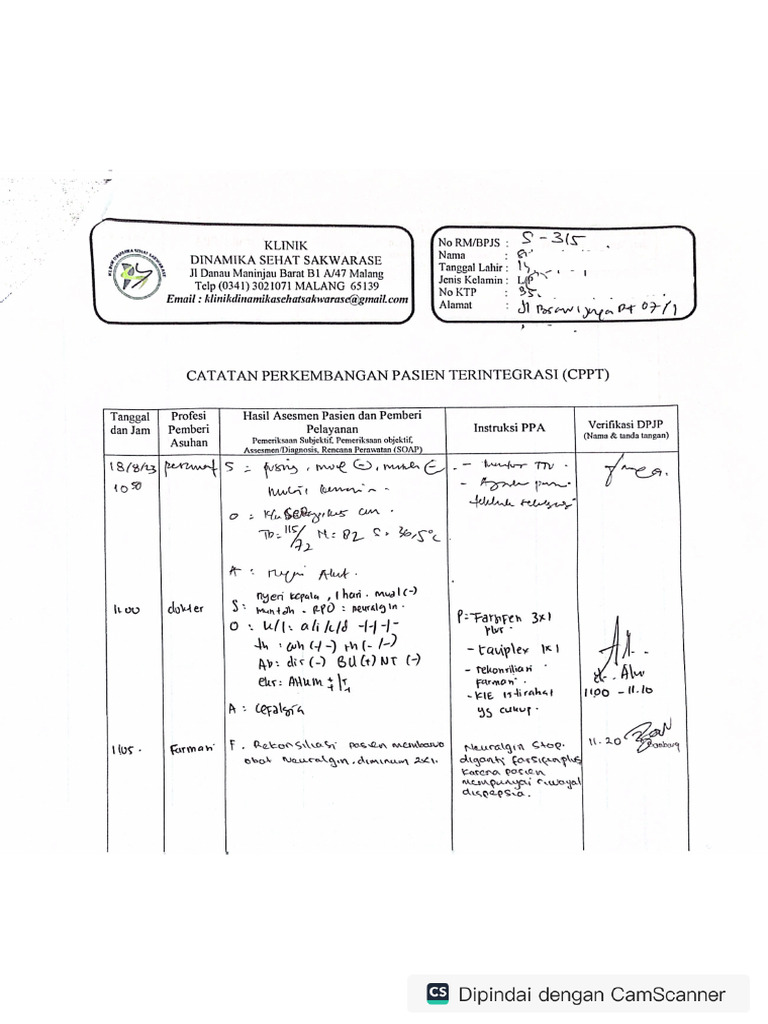 KLINIK
DINAMIKA SEHAT SAKWARASE
Jl Danau Maninjau Barat B1 A/47 Malang
Telp (0341) 3021071 MALANG 65139
Email : klinikdinamikasehatsakwarase@gmail.com
KLINIK DINAMIKA SEHAT SAKWARASE
No RM/BPJS : S - 315
Nama :
Tanggal Lahir :
Jenis Kelamin : L/P
No KTP : 35
Alamat : Jl Brawijaya Rt 07/1
CATATAN PERKEMBANGAN PASIEN TERINTEGRASI (CPPT)
Tanggal dan Jam
Profesi Pemberi Asuhan
Hasil Asesmen Pasien dan Pemberi Pelayanan
Pemeriksaan Subjektif, Pemeriksaan objektif, Assesmen/Diagnosis, Rencana Perawatan (SOAP)
Instruksi PPA
Verifikasi DPJP
(Nama & tanda tangan)
18/8/23
10 50
S = pusing, mual (-), muntah (-)
O =
TD = 115/72 N = 82 S = 36,5°C
A = Nyeri Akut.
- Monitor TTV.
11.00
dokter
S: nyeri kepala, 1 hari. mual (-)
muntah - RPO = neuralgin.
O : k/l : a/i/c/d -/-/-/-
th : wh (-/-) rh (-/-)
Ab: dis (-) BU (+) NT (-)
eks: AHHM
A : cefalgia
P = Farsifen 3x1
plus.
- taviplex 1x1
- rekonsiliasi
farmasi.
- KIE istirahat
yg cukup.
11.00 - 11.10
11.05.
Farmasi
F. Rekonsiliasi pasien membawa
obat Neuralgin. diminum 2x1.
Neuralgin stop.
diganti farsifen plus
karena pasien
mempunyai riwayat
dispepsia.
11.20
CS Dipindai dengan CamScanner